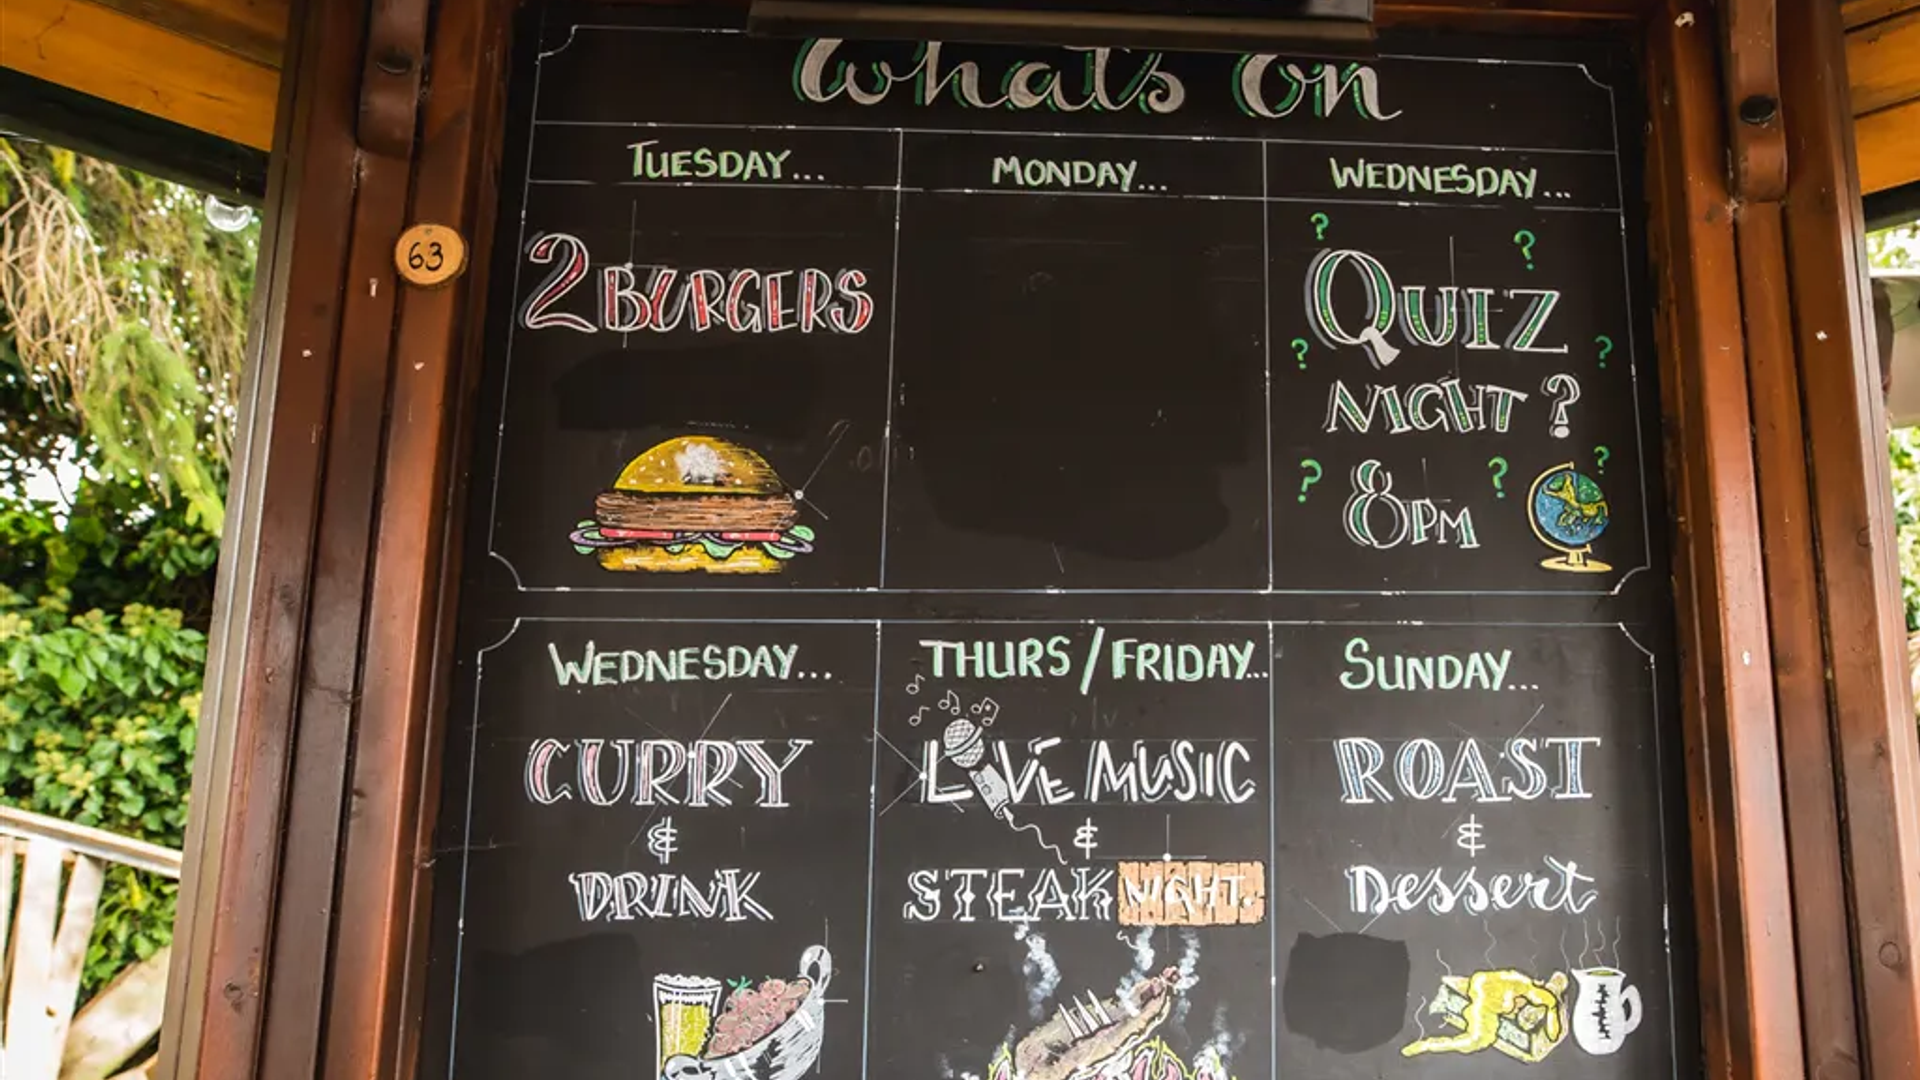 What's On
TUESDAY...
2 BURGERS
MONDAY...
WEDNESDAY...
QUIZ
NIGHT?
8PM
WEDNESDAY...
CURRY
&
DRINK
THURS/FRIDAY...
LIVE MUSIC
&
STEAK NIGHT.
SUNDAY...
ROAST
&
Dessert
63